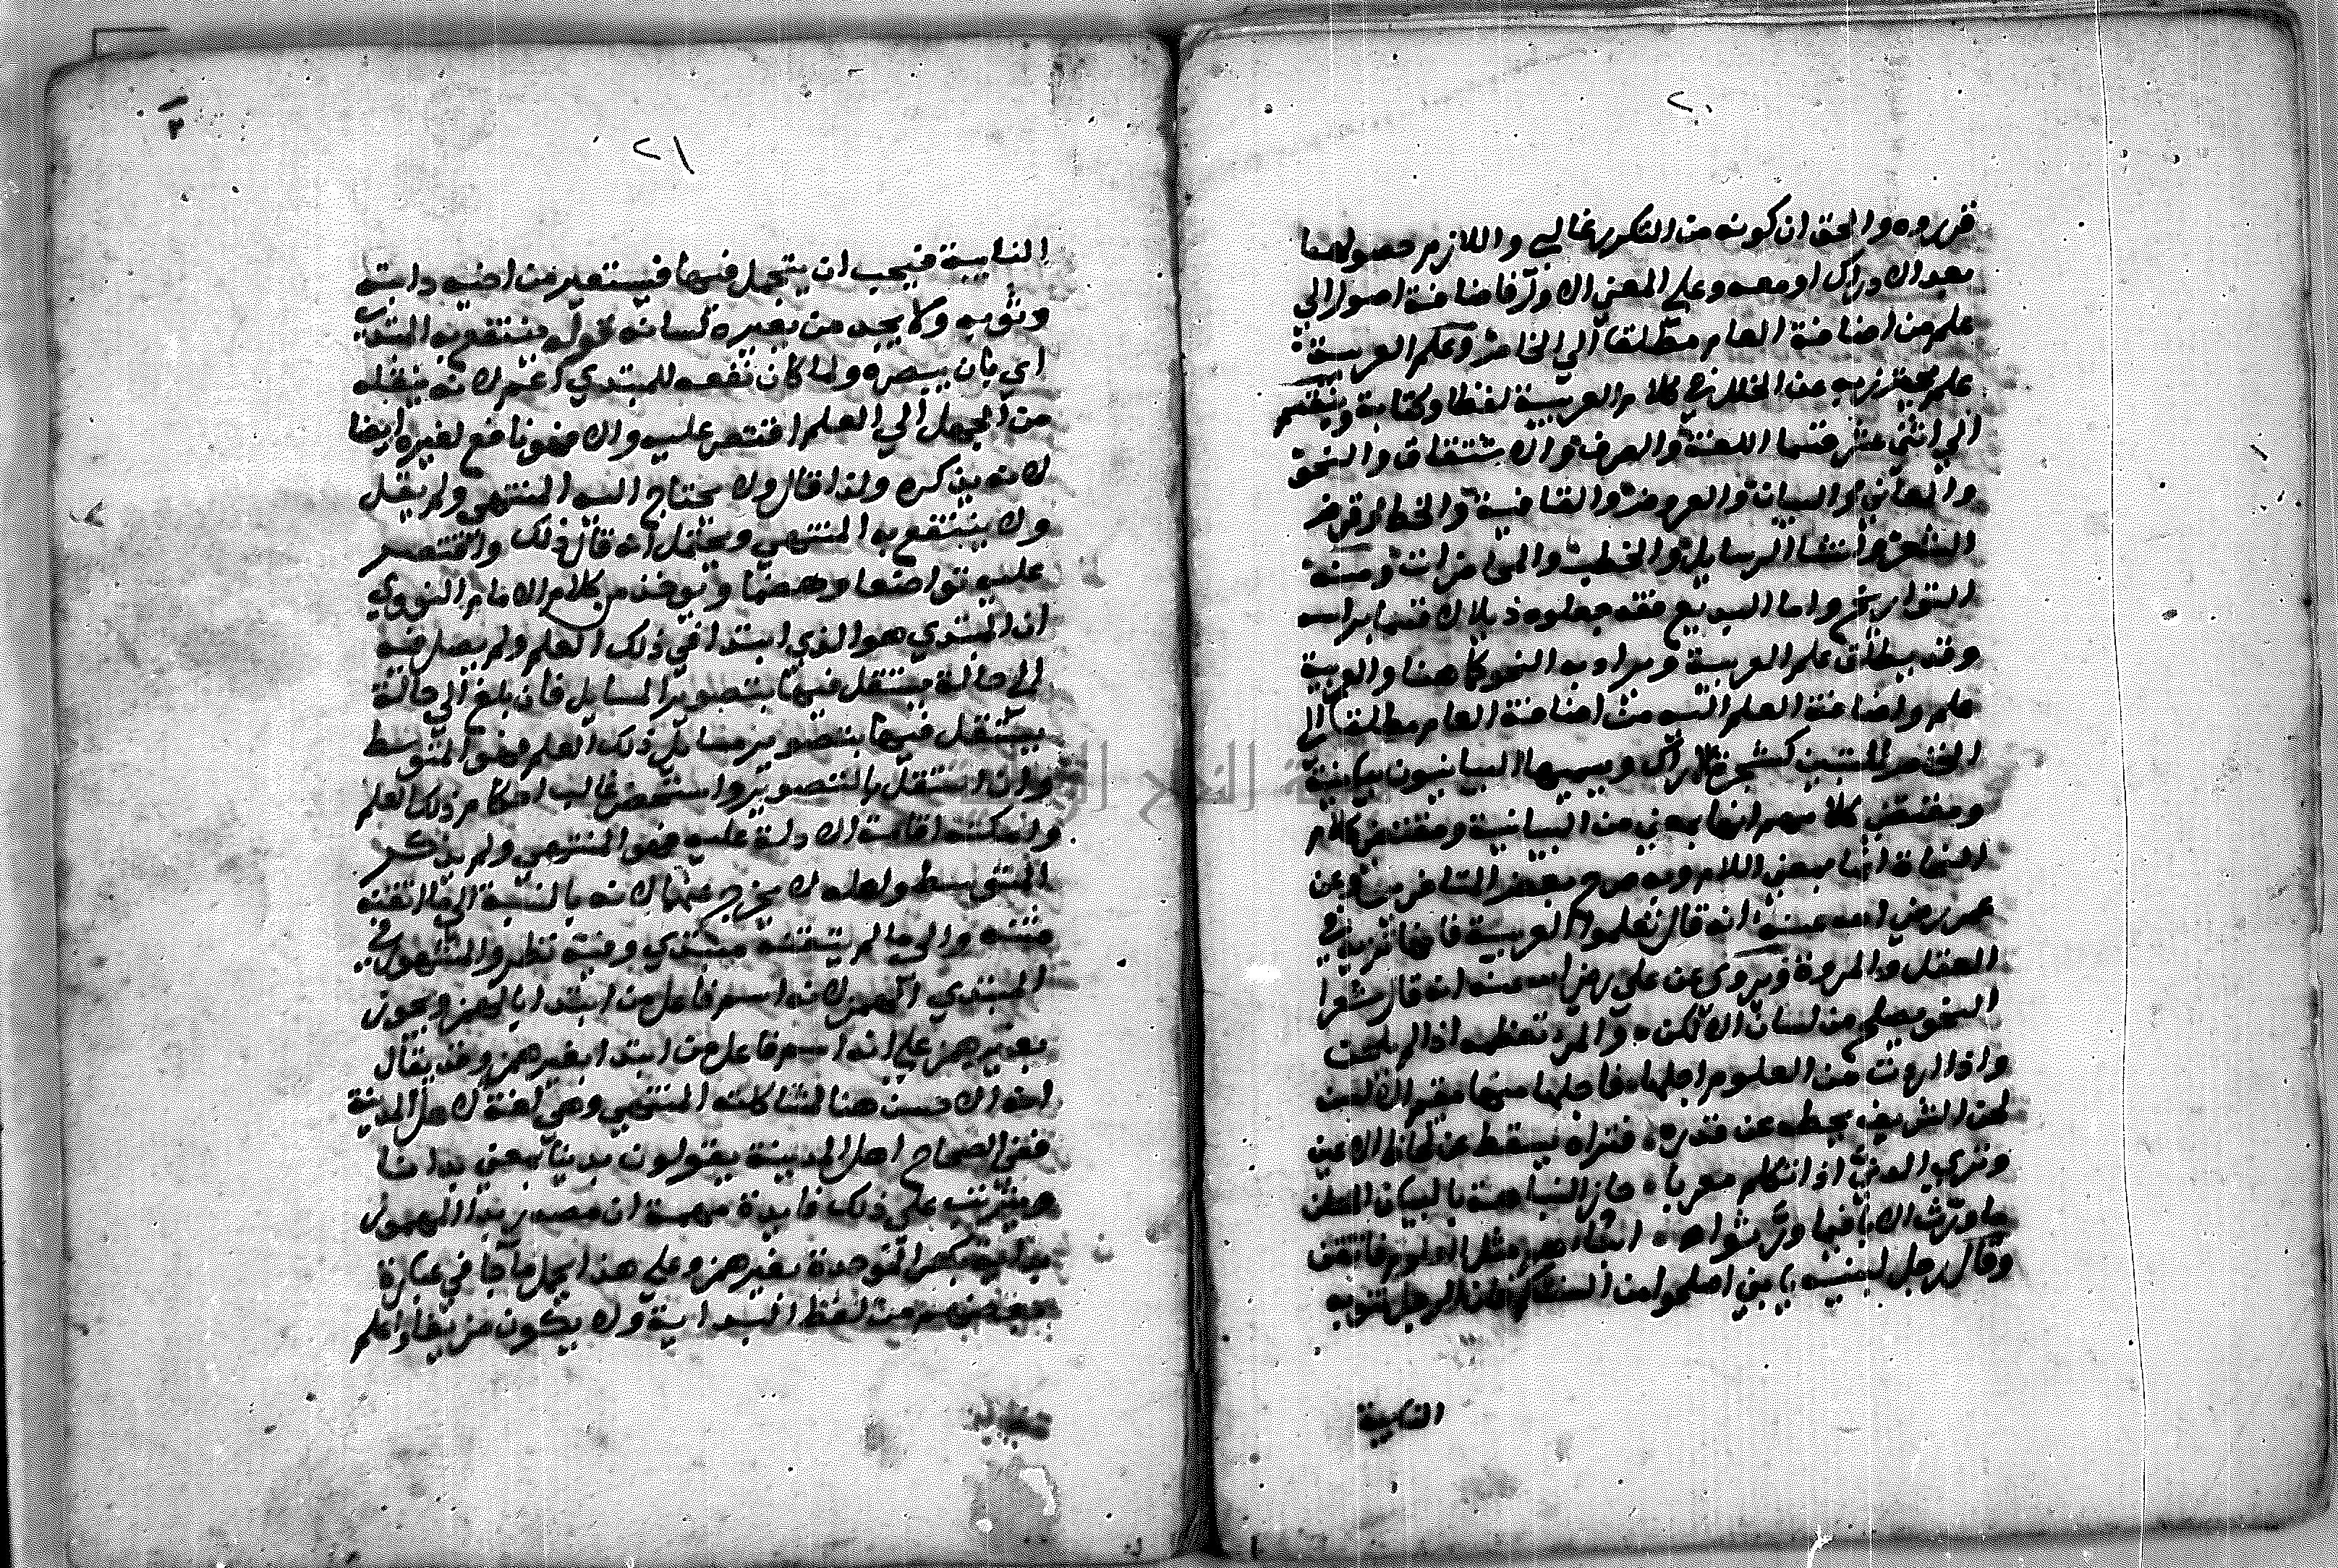 ٢٠
قرروه والحق ان كونه من النكرة غالبي واللازم حصولها
بعد الادراك او معه وعلي المعني الاول فاضافة اصول الي
علم من اضافة العام مطلقا الي الخاص وعلم العربية
علم يحترز به عن الخلل في كلام العربية لفظا وكتابة وينقسم
الي اثني عشر قسما اللغة والصرف والاشتقاق والنحو
والمعاني والبيان والعروض والقافية والخط وقرض
الشعر وانشا الرسايل والخطب والمحاضرات ومنه
التواريخ واما البديع فقد جعلوه ذيلا لا قسما براسه
وقد يطلق علم العربية ويراد به النحو كما هنا والعربية
علم واضافة العلم اليه من اضافة العام مطلقا الي
الخاص للتبيين كشجر الاراك ويسميها البيانيون بيانية
ومقتضي كلامهم انها بمعني من البيانية ومقتضي كلام
النحاة انها بمعني اللام وبه صرح بعض المتاخرين وعن
عمر رضي الله عنه انه قال تعلموا العربية فانها تزيد في
العقل والمروة ويروي عن علي رضي الله عنه انه قال شعرا
النحو يصلح من لسان الالكن والمرء تعظمه اذا لم يلحن
واذا اردت من العلوم اجلها فاجلها منها مقيم الالسن
لحن الشريف يحطه عن قدره فتراه يسقط عن لحاظ الاعين
وتري الدني اذا تكلم معربا حاز النباهة باللسان المعلن
ما ورث الابا فيما ورثوا ابناهم مثل العلوم فاتقن
وقال رجل لبنيه يا بني اصلحوا من السنتكم فان الرجل تنوبه
النايبة
٢١
النايبة فيجب ان يتجمل فيها فيستعير من اخيه دابته
وثوبه ولا يجد من يعيره لسانه قوله فينتفع به المبتدي
اي بان يبصره ولما كان نفعه للمبتدي اعم لانه ينقله
من الجهل الي العلم اقتصر عليه والا فهو نافع لغيره ايضا
لانه يذكره ولذا قال ولا يحتاج اليه المنتهي ولم يقل
ولا ينتفع به المنتهي ويحتمل انه قال ذلك واقتصر
عليه تواضعا وهضما ويوخذ من كلام الامام النووي
ان المبتدي هو الذي ابتدا في ذلك العلم ولم يصل فيه
الي حالة يستقل فيها بتصوير المسايل فان بلغ الي حالة
يستقل فيها بتصوير مسايل ذلك العلم فهو المتوسط
وان استقل بالتصوير واستحضر غالب احكام ذلك العلم
وامكنه اقامة الادلة عليه فهو المنتهي ولم يذكر
المتوسط ولعله لا يخرج عنها لانه بالنسبة الي ما اتقنه
منته والي ما لم يتقنه مبتدي وفيه نظر والمشهور في
المبتدي الهمز لانه اسم فاعل من ابتدا بالهمز ويجوز
بغير همز علي انه اسم فاعل من ابتدا بغير همز وقد يقال
انه الاحسن هنا لمشاكلته المنتهي وهي لغة لاهل المدينة
ففي الصحاح اهل المدينة يقولون بدينا بمعني بدانا
ويترتب علي ذلك فايدة مهمة ان مصدر بدا المهموز
بداية بكسر الموحدة بغير همز وعلي هذا يحمل ما جا في عبارة
بعضهم من لفظ البداية ولا يكون مزيفا واعلم